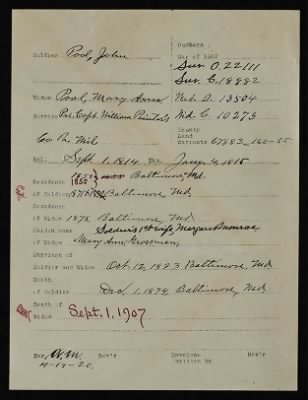 Numbers
Soldier Pool, John
War of 1812
Sur. O. 22111
Sur. C. 18882
Widow Pool, Mary Ann
Wid. O. 13504
Service Pvt. Capt. William
Wid. C. 10273
Co. Pa. Mil
County
Land
Warrants 67883_160-55
Enl. Sept. 1. 1814 Dis. Jan. 4. 1815
Residence 1850 1855 Baltimore Md.
of Soldier 1871 Baltimore Md.
Residence
of Widow 1878. Baltimore, Md.
Maiden name Soldier's 1st wife, Margaret Monroe.
of Widow Mary Ann Grossman.
Marriage of
Soldier and Widow Oct. 12, 1823. Baltimore, Md.
Death
of Soldier Dec. 1. 1874. Baltimore, Md.
Death of
Widow Sept. 1. 1907
Rev'r
Envelope
written by
Rev'r
4-19-20.